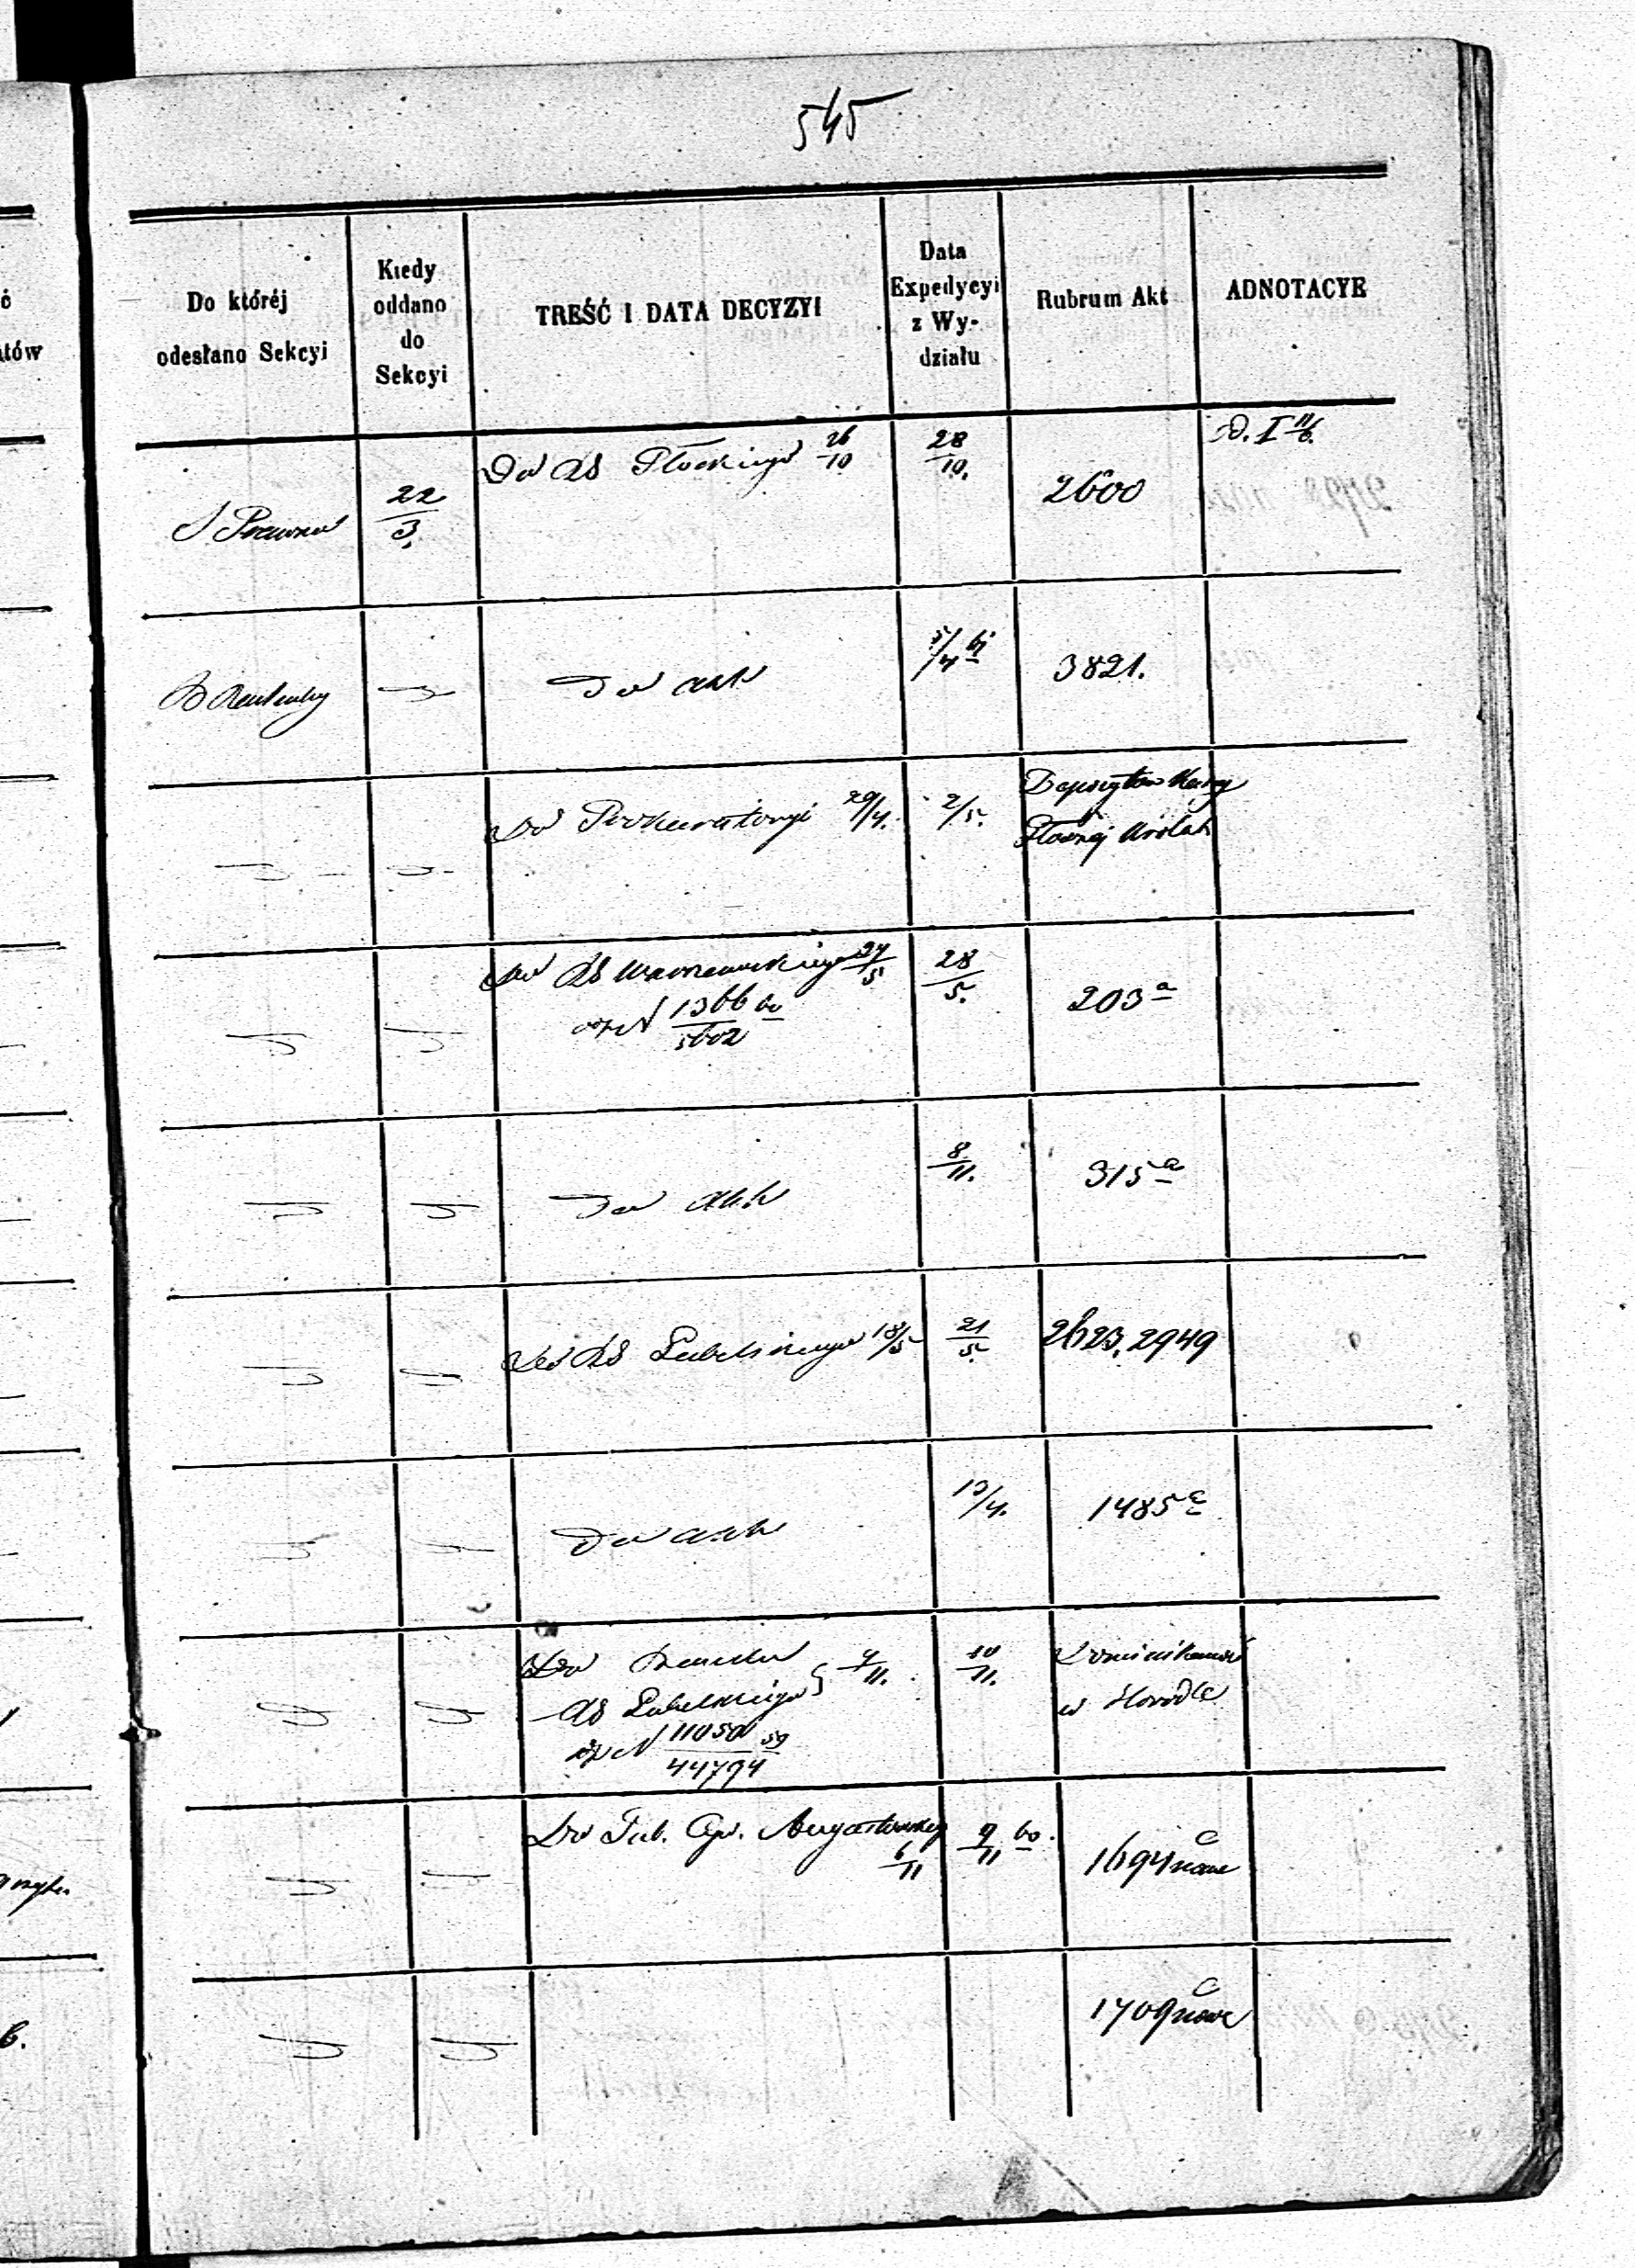 545
Do któréj
odesłano Sekcyi
Kiedy
oddano
do
Sekcyi
TREŚĆ I DATA DECYZYI
Data
Expedycyi
z Wy-
działu
Rubrum Akt
ADNOTACYE
S Prawna
22/3.
Do RG Płockiego 26/10
28/10.
2600
D. I 11/6.
Do akt
5/4
3821.
Do Prokuratoryi 29/4.
2/5.
Depozytów Kassy
Głównej
Do RG Warszawskiego 27/5
N 1366 60/5602
28/5.
203 a
Do akt
8/11.
315 a
Do RG Lubelskiego 18/5
21/5.
2623, 2949
Do akt
13/4.
1485 c
Do Banku
RG Lubelskiego 9/11.
N 11050/44794 59
10/11.
Dominikanów
w Horodle
Do Gub. Cyw. Augustowskiego
6/11
9/11 60.
1694 nowe C
1709 nowe C